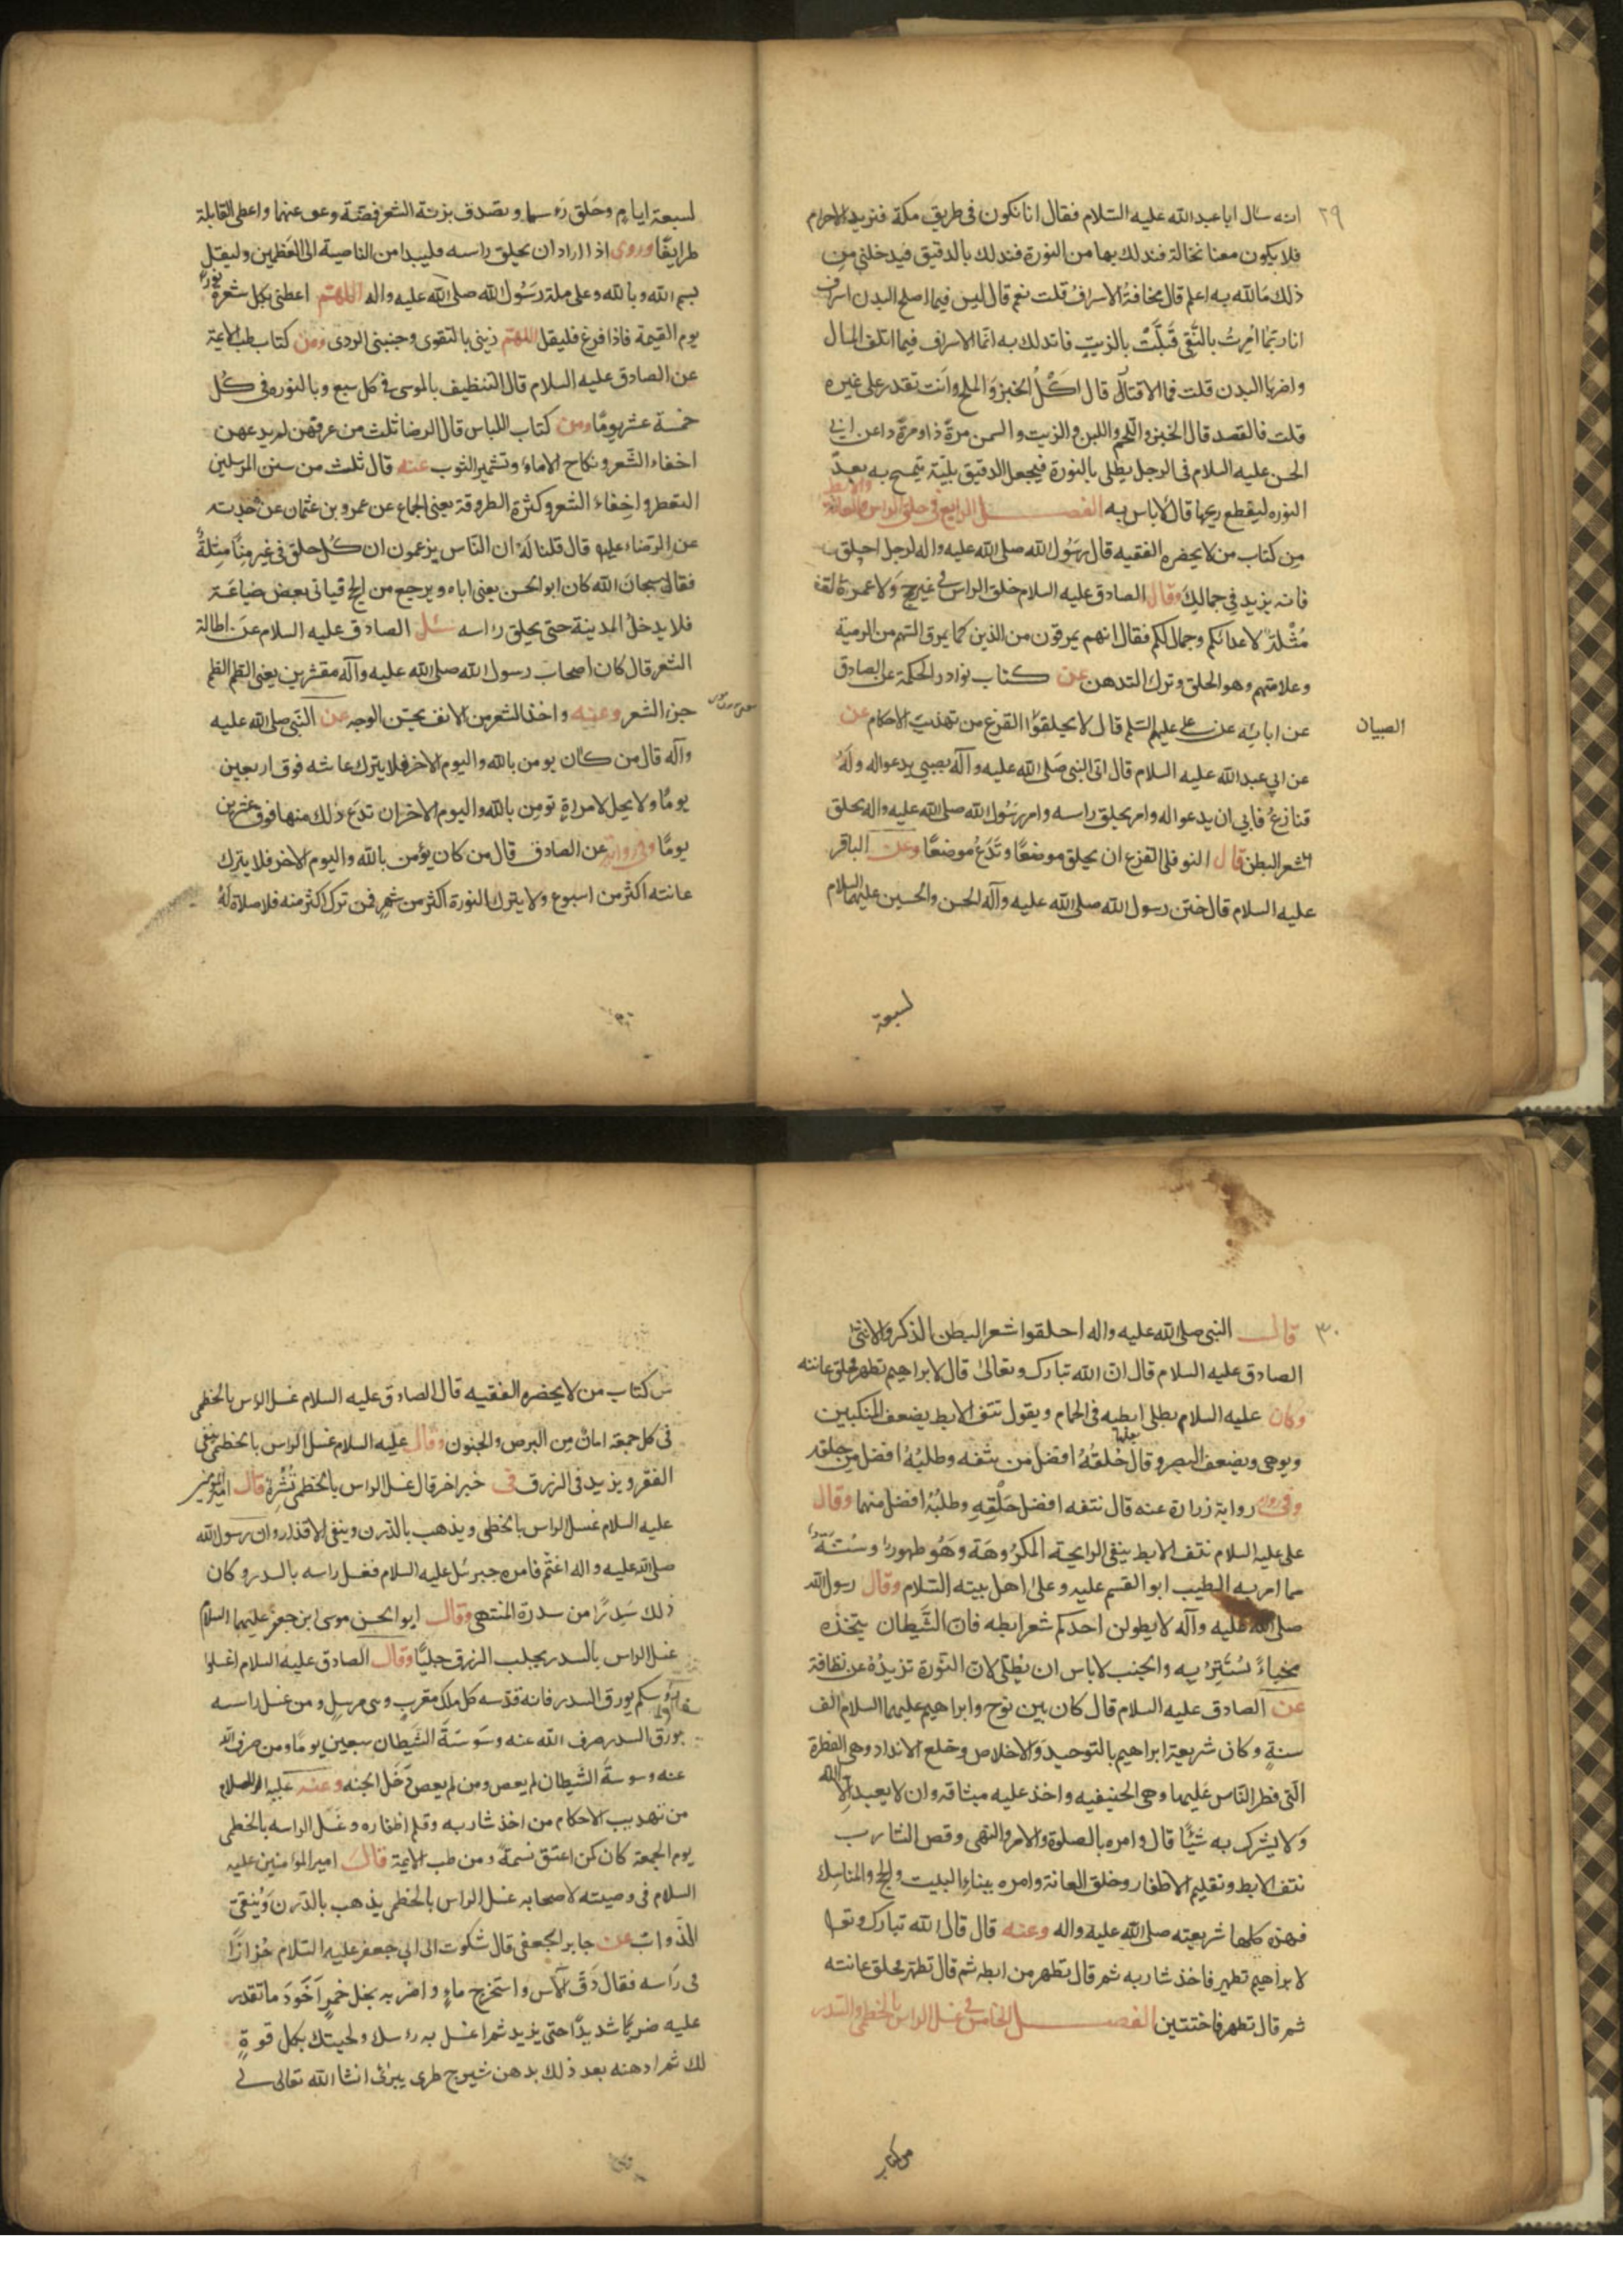 ٢٩
انه سال ابا عبد الله عليه السلام فقال انا نكون فى طريق مكة فنريد الاحرام
فلا يكون معنا نخالة فندلك بها من النورة فندلك بالدقيق فيدخلنى من
ذلك ما الله به اعلم قال مخافة الاسراف قلت نعم قال ليس فيما اصلح البدن اسراف
انا ربما امرت بالنقى فيلت بالزيت فاتدلك به انما الاسراف فيما اتلف المال
واضر بالبدن قلت فما الاقتار قال اكل الخبز والملح وانت تقدر على غيره
قلت فالقصد قال الخبز واللحم واللبن والزيت والسمن مرة ذا ومرة ذا عن ابى
الحسن عليه السلام فى الرجل يطلى بالنورة فيجعل الدقيق يلته يتمسح به بعد
النوره ليقطع ريحها قال لا باس به الفصل الرابع فى حلق الراس والعانة والابط
من كتاب من لا يحضره الفقيه قال رسول الله صلى الله عليه واله لرجل احلق
فانه يزيد فى جمالك وقال الصادق عليه السلام حلق الراس فى غير حج ولا عمرة
مثلة لاعدائكم وجمال لكم فقال انهم يمرقون من الدين كما يمرق السهم من الرمية
وعلامتهم وهو الحلق وترك التدهن عن كتاب نوادر الحكمة عن الصادق
عن ابائه عن على عليهم السلم قال لا يحلقوا القزع من تهذيب الاحكام عن
الصبيان
عن ابى عبد الله عليه السلام قال اتى النبى صلى الله عليه وآله بصبي يدعو اله وله
قنازع فابى ان يدعو اله وامر بحلق راسه وامر رسول الله صلى الله عليه واله بحلق
شعر البطن قال النوفلى القزع ان يحلق موضعا وتدع موضعا وعن الباقر
عليه السلام قال ختن رسول الله صلى الله عليه وآله الحسن والحسين عليهما السلام
لسبعة
لسبعة ايام وحلق رؤسهما وتصدق بزنة الشعر فضة وعق عنهما واعطى القابلة
طرايفا وروى اذا اراد ان يحلق راسه فليبدا من الناصية الى العظمين وليقل
بسم الله وبالله وعلى ملة رسول الله صلى الله عليه واله اللهم اعطنى بكل شعرة نورا
يوم القيمة فاذا فرغ فليقل اللهم زينى بالتقوى وجنبنى الردى ومن كتاب طب الائمة
عن الصادق عليه السلام قال التنظيف بالموسى فى كل سبع وبالنوره فى كل
خمسة عشر يوما ومن كتاب اللباس قال الرضا ثلث من عرفهن لم يدعهن
اخفاء الشعر ونكاح الاماء وتشمير الثوب عنه قال ثلث من سنن المرسلين
التعطر واخفاء الشعر وكثرة الطروقة يعنى الجماع عن عمرو بن عثمان عن
عن الرضاء عليه قال قلنا له ان الناس يزعمون ان كل حلق فى غير منا مثلة
فقال سبحان الله كان ابو الحسن يعنى اباه ويرجع من الحج فياتى بعض ضياعه
فلا يدخل المدينة حتى يحلق راسه سئل الصادق عليه السلام عن اطالة
الشعر قال كان اصحاب رسول الله صلى الله عليه وآله مقشرين يعنى الطم الطم
جز الشعر وعنه واخذ الشعر من الانف يحسن الوجه عن النبى صلى الله عليه
وآله قال من كان يومن بالله واليوم الاخر فلا يترك عانته فوق اربعين
يوما ولا يحل لامراة تومن بالله واليوم الاخر ان تدع ذلك منها فوق عشرين
يوما وفى رواية عن الصادق قال من كان يؤمن بالله واليوم الاخر فلا يترك
عانته اكثر من اسبوع ولا يترك النورة اكثر من شهر فمن ترك اكثر منه فلا صلاة له
٣٠
قال النبى صلى الله عليه واله احلقوا شعر البطن الذكر والانثى
الصادق عليه السلام قال ان الله تبارك وتعالى قال لابراهيم تطهر فحلق عانته
وكان عليه السلام يطلى ابطيه فى الحمام ويقول نتف الابط يضعف المنكبين
ويوهى ويضعف البصر وقال حلقه افضل من نتفه وطليه افضل من حلقه
وفى رواية زرارة عنه قال نتفه افضل حلقه وطليه افضل منهما وقال
على عليه السلام نتف الابط ينفى الرايحة المكروهة وهو طهور وسنة
مما امر به الطيب ابو القسم عليه وعلى اهل بيته السلام وقال رسول الله
صلى الله عليه وآله لا يطولن احدكم شعر ابطه فان الشيطان يتخذه
مخباء يستتر به والجنب لا باس ان يطلى لان النورة تزيده نظافة
عن الصادق عليه السلام قال كان بين نوح وابراهيم عليهما السلام الف
سنة وكان شريعة ابراهيم بالتوحيد والاخلاص وخلع الانداد وهى الفطرة
التى فطر الناس عليها وهى الحنيفيه واخذ عليه ميثاقه وان لا يعبد الا الله
ولا يشرك به شيئا قال وامره بالصلوة والامر والنهى وقص الشارب
نتف الابط وتقليم الاظفار وحلق العانة وامره ببناء البيت والحج والمناسك
فهذه كلها شريعته صلى الله عليه واله وعنه قال قال الله تبارك وتعا
لابراهيم تطهر فاخذ شاربه ثم قال تطهر من ابطه ثم قال تطهر فحلق عانته
ثم قال تطهر فاختتين الفصل الخامس فى غسل الراس بالخطمى والسدر
من كتاب
من كتاب من لا يحضره الفقيه قال الصادق عليه السلام غسل الراس بالخطمى
فى كل جمعة امان من البرص والجنون وقال عليه السلام غسل الراس بالخطمى ينفى
الفقر ويزيد فى الرزق فى خبر اخر قال غسل الراس بالخطمى نشرة قال امير المومنين
عليه السلام غسل الراس بالخطمى ويذهب بالدرن وينفى الاقذار وان رسول الله
صلى الله عليه واله اغتم فامره جبرئل عليه السلام فغسل راسه بالسدر وكان
ذلك سدرا من سدرة المنتهى وقال ابو الحسن موسى ابن جعفر عليهما السلام
غسل الراس بالسدر يجلب الرزق جلبا وقال الصادق عليه السلام اغسلوا
رؤسكم بورق السدر فانه قدسه كل ملك مقرب ونبى مرسل ومن غسل راسه
بورق السدر صرف الله عنه وسوسة الشيطان سبعين يوما ومن صرف الله
عنه وسوسة الشيطان لم يعص ومن لم يعص دخل الجنه وعنه عليه السلام
من تهذيب الاحكام من اخذ شاربه وقلم اظفاره وغسل الراسه بالخطمى
يوم الجمعة كان كمن اعتق نسمة ومن طب الائمة قال امير المؤمنين عليه
السلام فى وصيته لاصحابه غسل الراس بالخطمى يذهب بالدرن وينقى
الدواب عن جابر الجعفى قال شكوت الى ابى جعفر عليه السلام حزازا
فى راسه فقال دق الاس واستخرج ماء واضربه بخل خمر اجود ما تقدر
عليه ضربا شديدا حتى يزبد ثم اغسل به رؤسك ولحيتك بكل قوة
لك ثم ادهنه بعد ذلك بدهن شيرج طرى يبرئ انشا الله تعالى